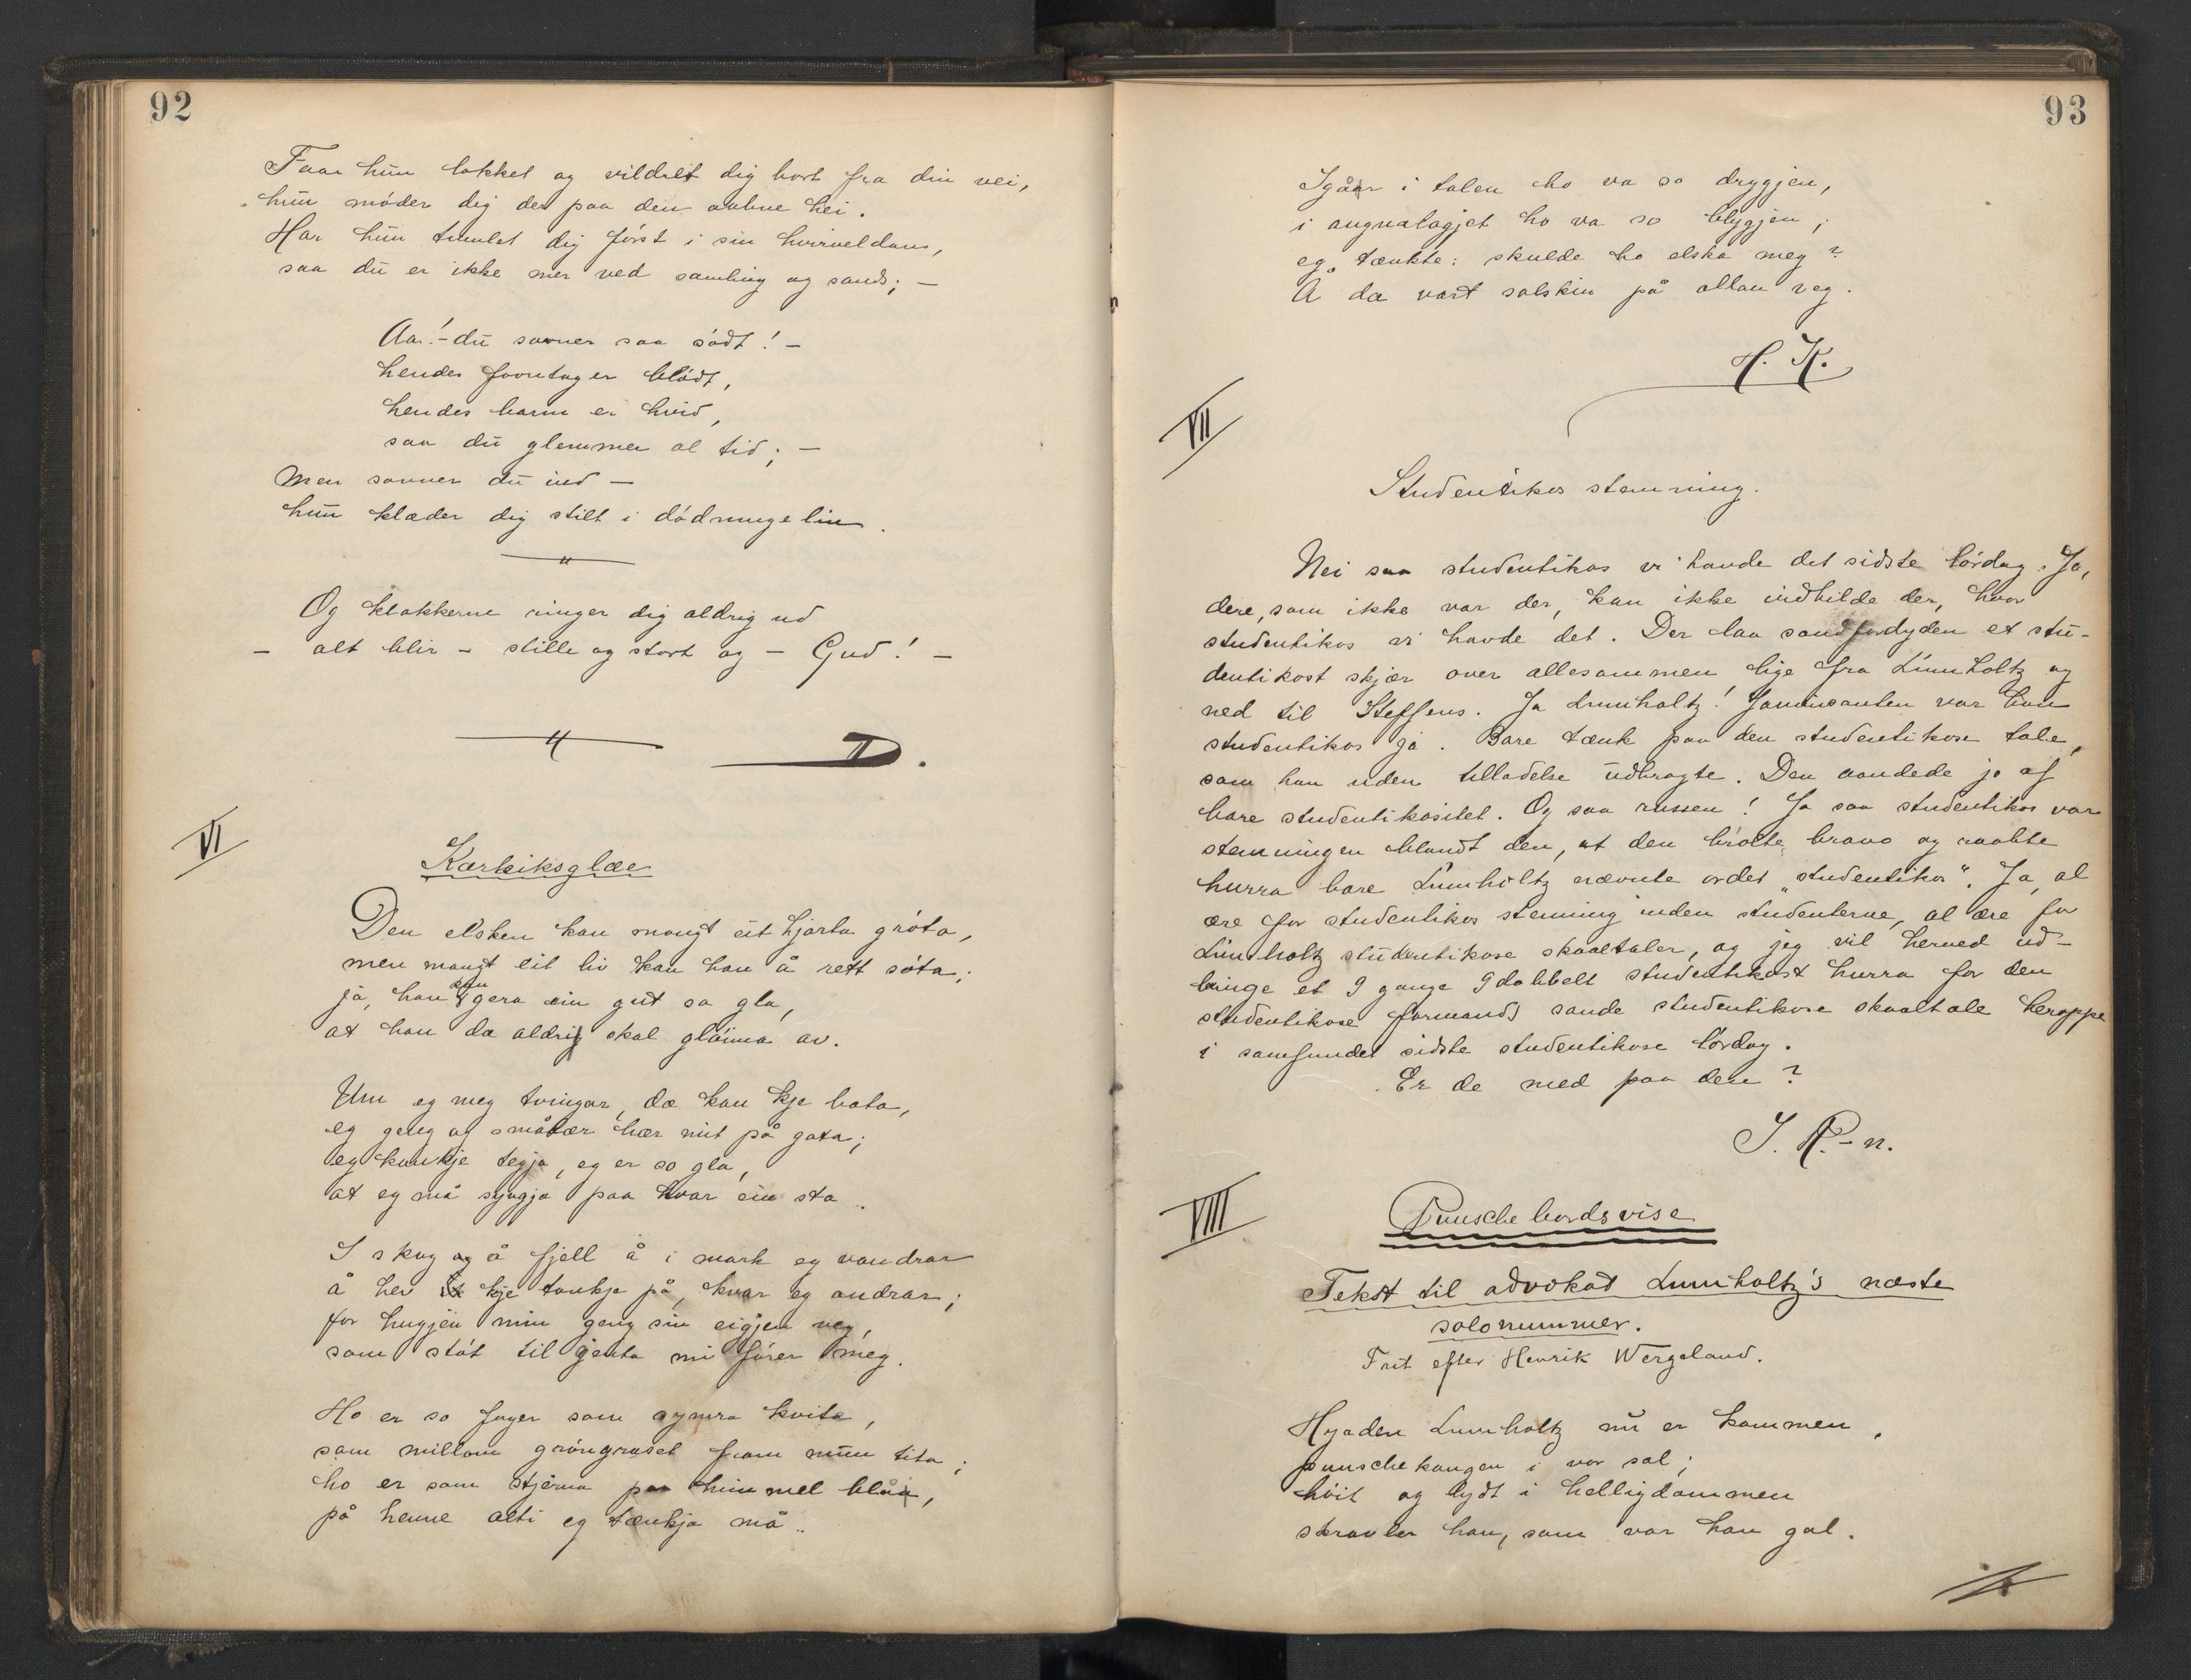 92
Faar hun lokket og vildret dig bort fra din vei,
hun møder dig der paa den aabne hei.
Har hun tumlet dig først i sin hvirveldans,
saa du er ikke mer ved samling og sands; –
Aa! – du sovner saa sødt! –
hendes favntag er blødt,
hendes barm er hvid,
saa du glemmer al tid; –
Men sovner du ind –
hun klæder dig stilt i dødningelin.
Og klokkerne ringer dig aldrig ud
– alt blir – stille og stort og – Gud! –
D.
VI
Kærleiksglæe
Den elsken kan mangt eit hjarta grøta,
men mangt eit liv kan han å rett søta;
ja, han kan gera ein gut so gla,
at han da aldrig skal gløima av.
Um eg meg tvingar, da kan kje bata,
eg geng og smålær hær mit på gata;
eg kan kje tegja, eg er so gla,
at eg må syngja paa kvar ein sta.
I skog og å fjell å i mark eg vandrar
å hev kje tankje på, kvar eg andrar;
for hugjen min geng sin eigjen veg,
som støt til jenta mi fører meg.
Ho er so fager som symra kvite,
som millom grøngraset fram mun tita;
ho er som stjerna paa himmel blåa,
på henne alti eg tænkja må..
93
Igåar i talen ho va so dryggjen,
i augnalagjet ho va so blyggjen;
eg tænkte: skulde ho elska meg?
Å da vart solskin på allan veg.
H. K.
VII
Studentikos stemning.
Nei saa studentikos vi havde det sidste lørdag. Ja,
dere, som ikke var der, kan ikke indbilde der, hvor
studentikos vi havde det. Der laa sandfærdyden et stu-
dentikost skjær over allesammen lige fra Lumholtz og
ned til Steffens. Ja Lumholtz! Jamnsanten var han
studentikos ja. Bare tænk paa den studentikose tale,
som han uden tilladelse udbragte. Den aandede jo af
bare studentikositet. Og saa russen! Ja saa studentikos var
stemningen blandt den, at den brølte bravo og raabte
hurra bare Lumholtz nævnte ordet „studentikos“. Ja, al
ære for studentikos stemning inden studenterne, al ære for
Lumholtz studentikose skaaltaler, og jeg vil herved ud-
bringe et 9 gange 9 dobbelt studentikost hurra for den
studentikose formands sande studentikose skaaltale heroppe
i samfundet sidste studentikose lørdag.
Er de med paa den?
J. R.-n.
VIII
Punschebordsvise
Tekst til advokat Lumholtz's næste
solonummer.
Frit efter Henrik Wergeland.
Hyaden Lumholtz nu er kommen,
punschekongen i vor sal;
høit og lydt i helligdommen
skravler han, som var han gal.